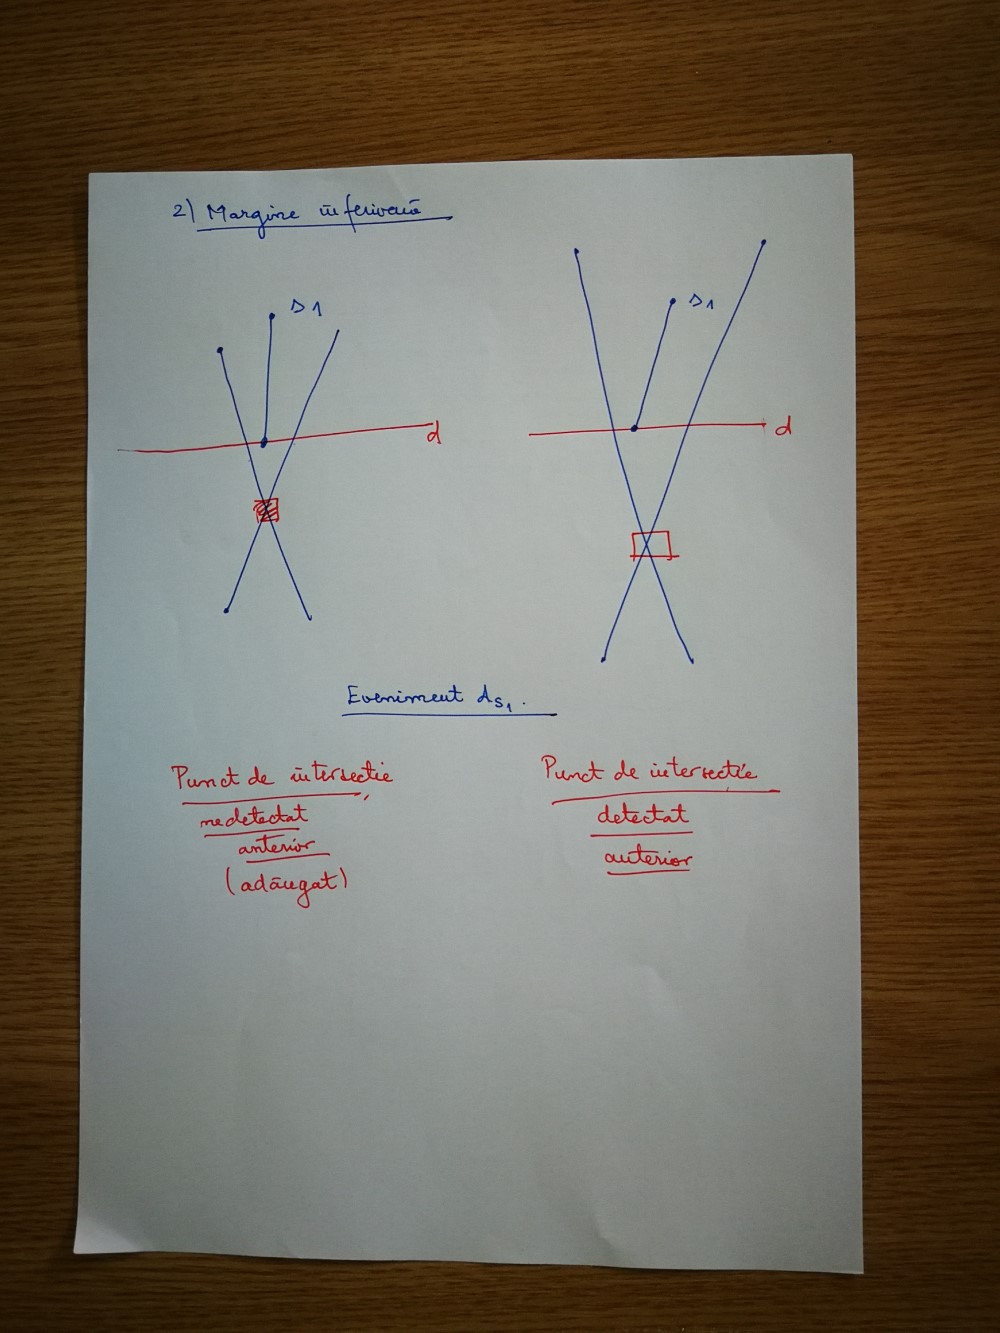 2) Margine inferioară
s1
s1
d
d
Eveniment ds1.
Punct de intersecție
nedetectat
anterior
(adăugat)
Punct de intersecție
detectat
anterior